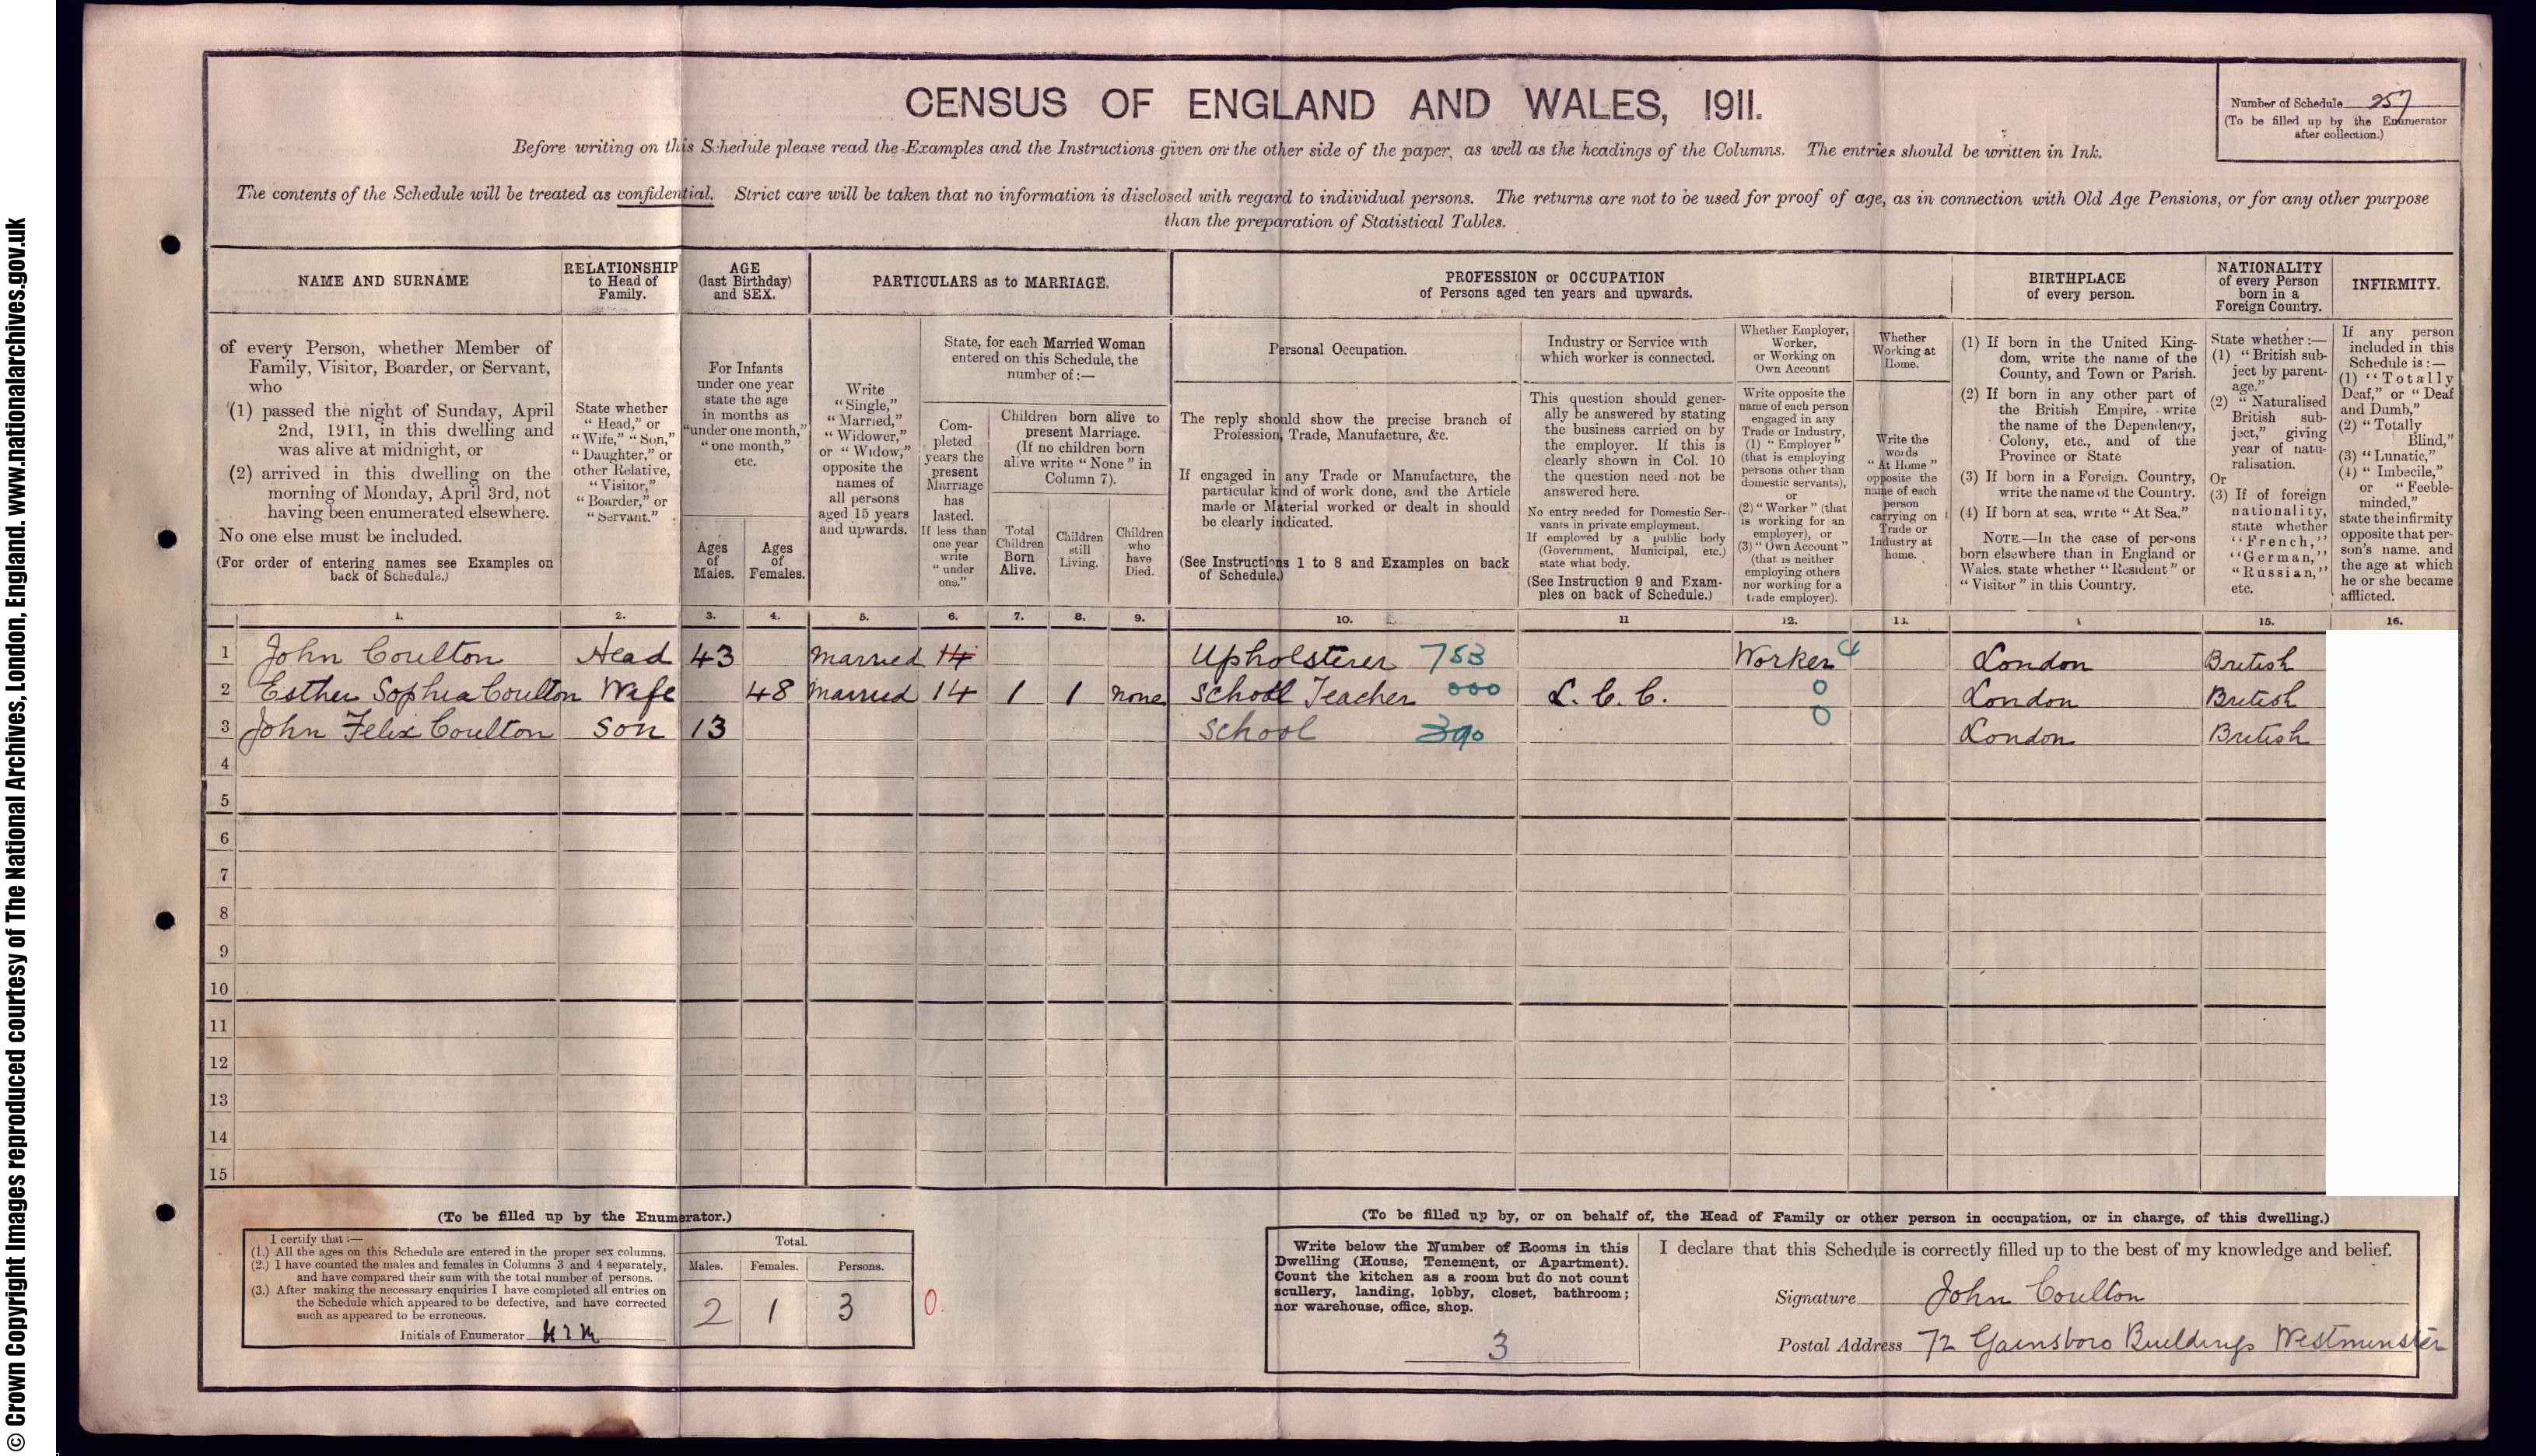 CENSUS OF ENGLAND AND WALES, 1911.
Number of Schedule 257
(To be filled up by the Enumerator
after collection.)
Before writing on this Schedule please read the Examples and the Instructions given on the other side of the paper, as well as the headings of the Columns. The entries should be written in Ink.
The contents of the Schedule will be treated as confidential. Strict care will be taken that no information is disclosed with regard to individual persons. The returns are not to be used for proof of age, as in connection with Old Age Pensions, or for any other purpose
than the preparation of Statistical Tables.
NAME AND SURNAME
of every Person, whether Member of
Family, Visitor, Boarder, or Servant,
who
(1) passed the night of Sunday, April
2nd, 1911, in this dwelling and
was alive at midnight, or
(2) arrived in this dwelling on the
morning of Monday, April 3rd, not
having been enumerated elsewhere.
No one else must be included.
(For order of entering names see Examples on
back of Schedule.)
RELATIONSHIP
to Head of
Family.
State whether
"Head," or
"Wife," "Son,"
"Daughter," or
other Relative,
"Visitor,"
"Boarder," or
"Servant."
AGE
(last Birthday)
and SEX.
For Infants
under one year
state the age
in months as
"under one month,"
"one month,"
etc.
Ages
of
Males.
Ages
of
Females.
PARTICULARS as to MARRIAGE.
Write
"Single,"
"Married,"
"Widower,"
or "Widow,"
opposite the
names of
all persons
aged 15 years
and upwards.
State, for each Married Woman
entered on this Schedule, the
number of:—
Com-
pleted
years the
present
Marriage
has
lasted.
If less than
one year
write
"under
one."
Children born alive to
present Marriage.
(If no children born
alive write "None" in
Column 7).
Total
Children
Born
Alive.
Children
still
Living.
Children
who
have
Died.
PROFESSION or OCCUPATION
of Persons aged ten years and upwards.
Personal Occupation.
The reply should show the precise branch of
Profession, Trade, Manufacture, &c.
If engaged in any Trade or Manufacture, the
particular kind of work done, and the Article
made or Material worked or dealt in should
be clearly indicated.
(See Instructions 1 to 8 and Examples on back
of Schedule.)
Industry or Service with
which worker is connected.
This question should gener-
ally be answered by stating
the business carried on by
the employer. If this is
clearly shown in Col. 10
the question need not be
answered here.
No entry needed for Domestic Ser-
vants in private employment.
If employed by a public body
(Government, Municipal, etc.)
state what body.
(See Instruction 9 and Exam-
ples on back of Schedule.)
Whether Employer,
Worker,
or Working on
Own Account
Write opposite the
name of each person
engaged in any
Trade or Industry,
(1) "Employer"
(that is employing
persons other than
domestic servants),
or
(2) "Worker" (that
is working for an
employer), or
(3) "Own Account"
(that is neither
employing others
nor working for a
trade employer).
Whether
Working at
Home.
Write the
words
"At Home"
opposite the
name of each
person
carrying on
Trade or
Industry at
home.
BIRTHPLACE
of every person.
(1) If born in the United King-
dom, write the name of the
County, and Town or Parish.
(2) If born in any other part of
the British Empire, write
the name of the Dependency,
Colony, etc., and of the
Province or State
(3) If born in a Foreign Country,
write the name of the Country.
(4) If born at sea, write "At Sea."
NOTE.—In the case of persons
born elsewhere than in England or
Wales, state whether "Resident" or
"Visitor" in this Country.
NATIONALITY
of every Person
born in a
Foreign Country.
State whether:—
(1) "British sub-
ject by parent-
age."
(2) "Naturalised
British sub-
ject," giving
year of natu-
ralisation.
Or
(3) If of foreign
nationality,
state whether
"French,"
"German,"
"Russian,"
etc.
INFIRMITY.
If any person
included in this
Schedule is:—
(1) "Totally
Deaf," or "Deaf
and Dumb,"
(2) "Totally
Blind,"
(3) "Lunatic,"
(4) "Imbecile,"
or "Feeble-
minded,"
state the infirmity
opposite that per-
son's name, and
the age at which
he or she became
afflicted.
1. 2. 3. 4. 5. 6. 7. 8. 9. 10. 11 12. 13. 15. 16.
1 John Coulton Head 43 Married 14 Upholsterer 753 Worker London British
2 Esther Sophia Coulton Wife 48 Married 14 1 1 none School Teacher 000 L.C.C. 0 London British
3 John Felix Coulton Son 13 School 390 0 London British
4
5
6
7
8
9
10
11
12
13
14
15
(To be filled up by the Enumerator.)
I certify that:—
(1.) All the ages on this Schedule are entered in the proper sex columns.
(2.) I have counted the males and females in Columns 3 and 4 separately,
and have compared their sum with the total number of persons.
(3.) After making the necessary enquiries I have completed all entries on
the Schedule which appeared to be defective, and have corrected
such as appeared to be erroneous.
Initials of Enumerator
Total.
Males. Females. Persons.
2 1 3 0.
(To be filled up by, or on behalf of, the Head of Family or other person in occupation, or in charge, of this dwelling.)
Write below the Number of Rooms in this
Dwelling (House, Tenement, or Apartment).
Count the kitchen as a room but do not count
scullery, landing, lobby, closet, bathroom;
nor warehouse, office, shop.
3
I declare that this Schedule is correctly filled up to the best of my knowledge and belief.
Signature John Coulton
Postal Address 72 Gainsboro Buildings Westminster
© Crown Copyright Images reproduced courtesy of The National Archives, London, England. www.nationalarchives.gov.uk